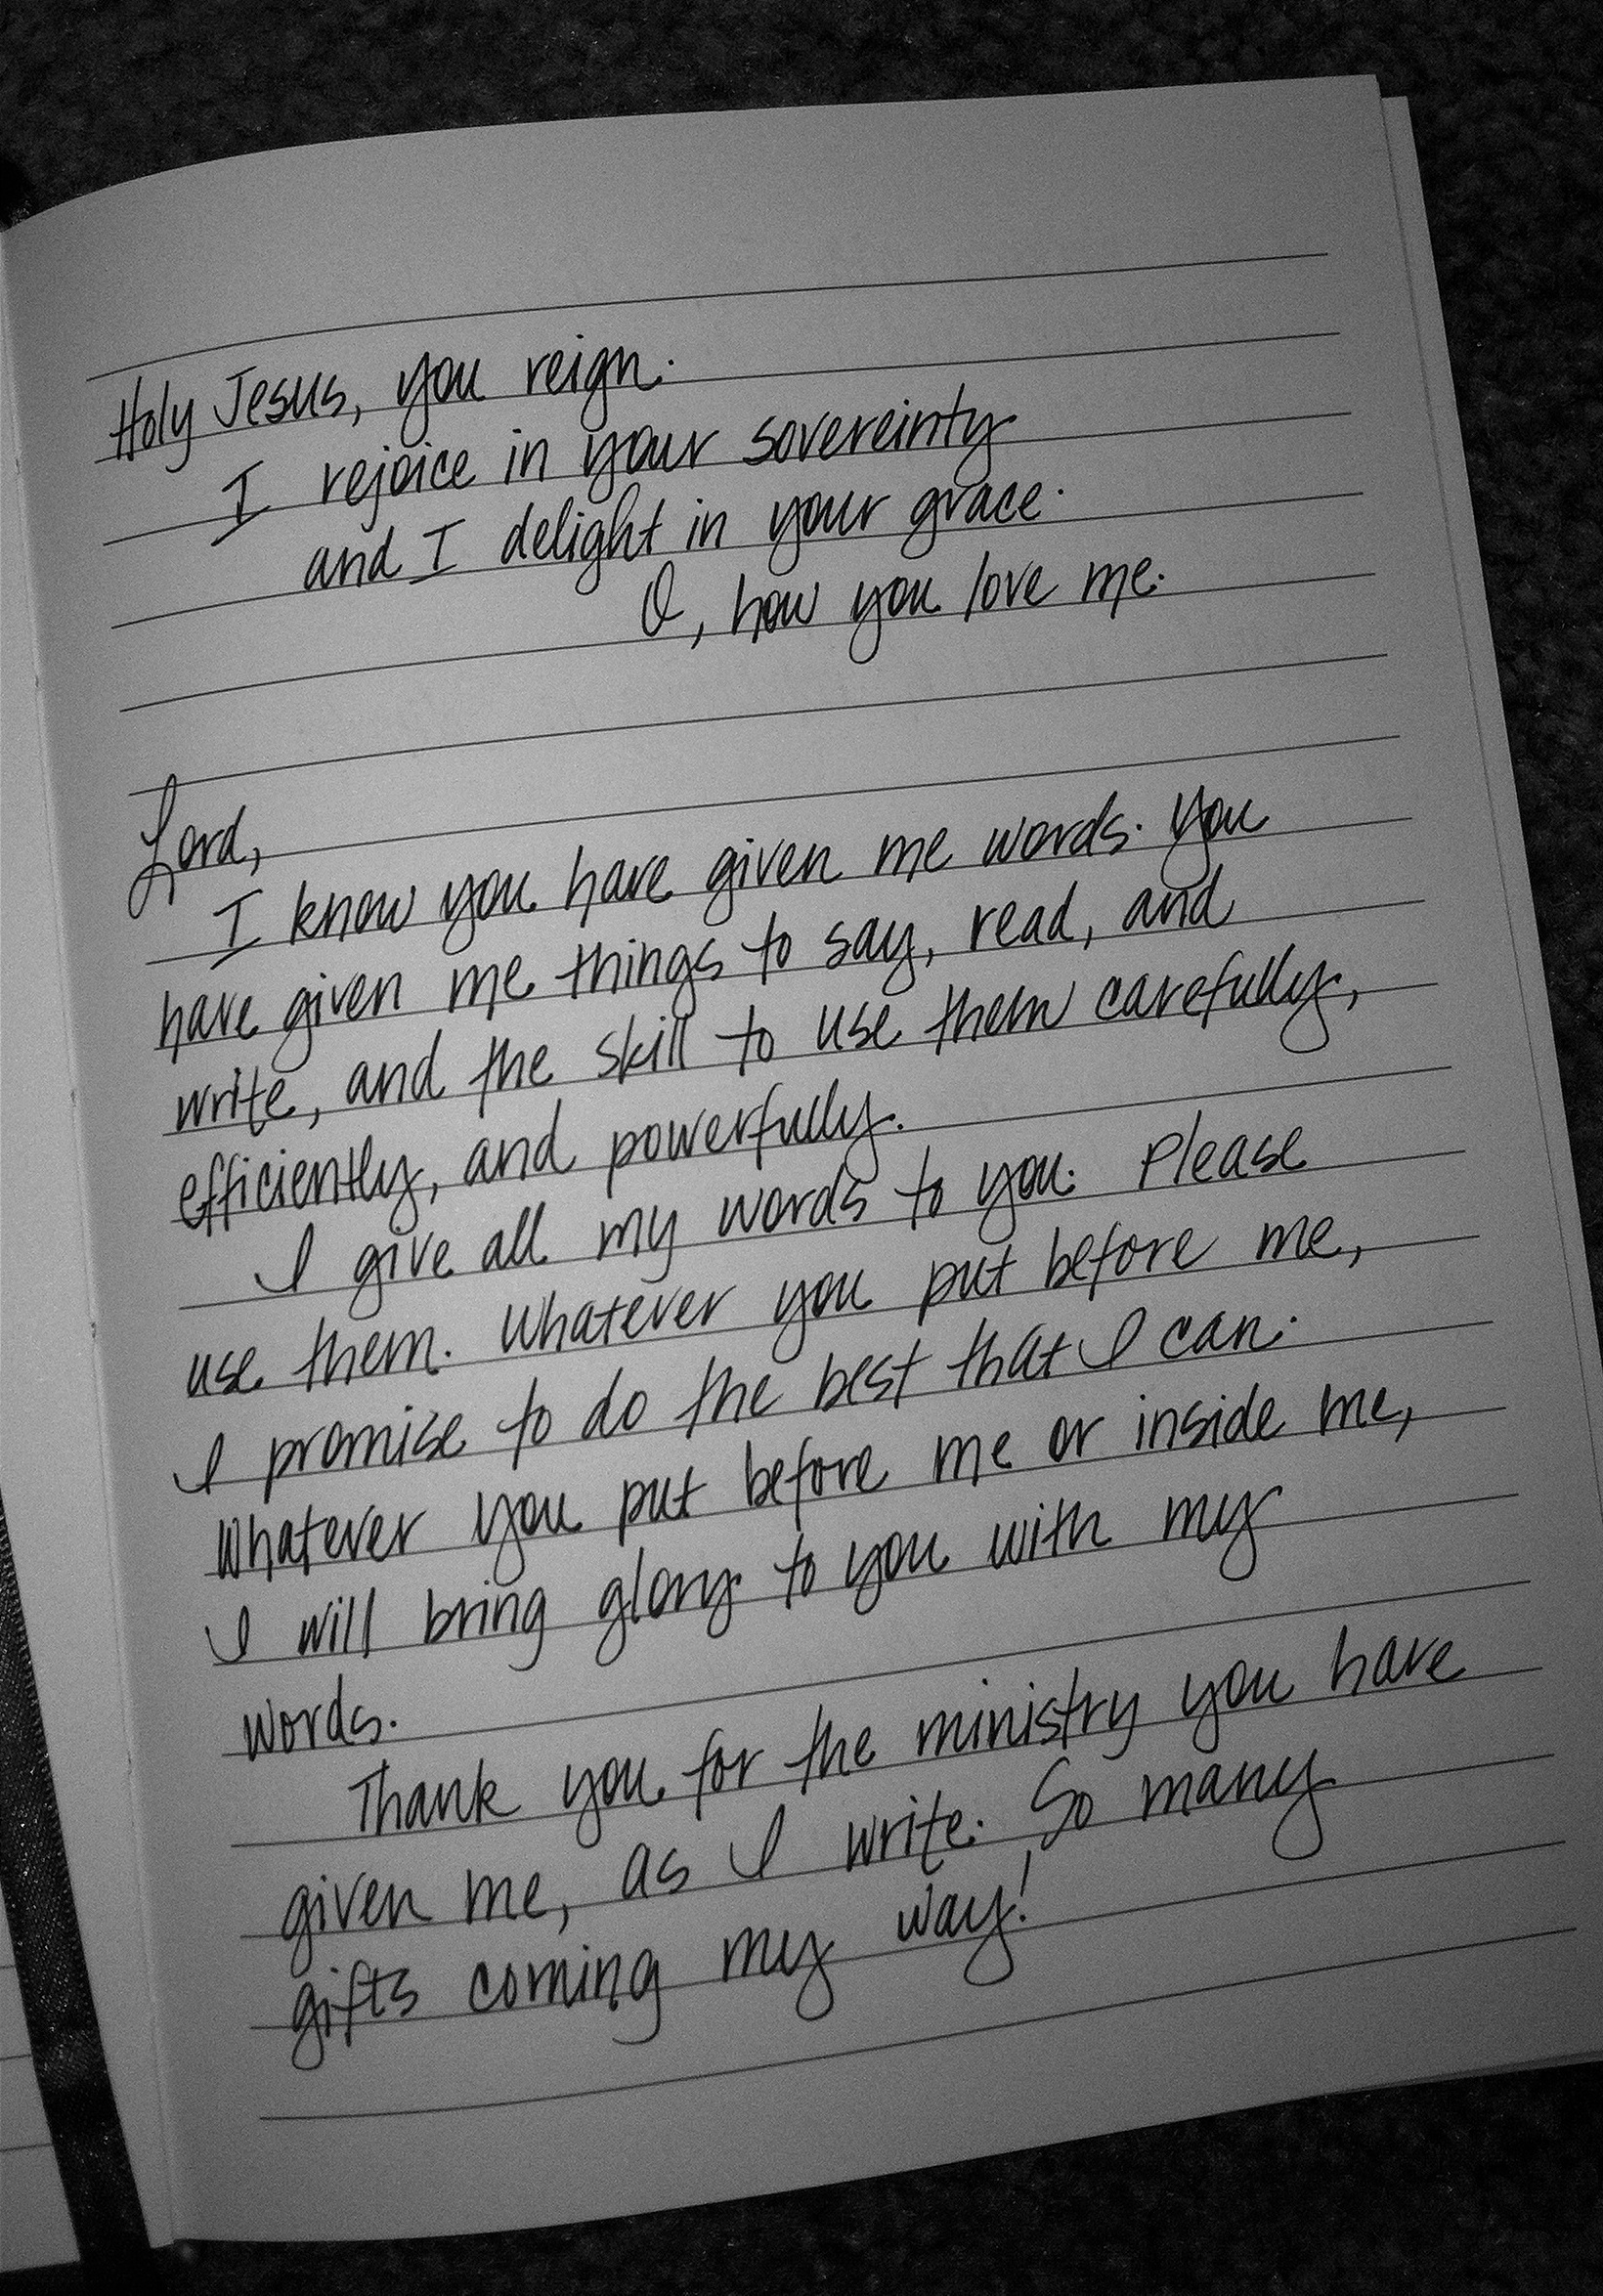 Holy Jesus, you reign.
I rejoice in your sovereinty
and I delight in your grace.
O, how you love me.
Lord,
I know you have given me words. You
have given me things to say, read, and
write, and the skill to use them carefully,
efficiently, and powerfully.
I give all my words to you. Please
use them. Whatever you put before me,
I promise to do the best that I can.
Whatever you put before me or inside me,
I will bring glory to you with my
words.
Thank you for the ministry you have
given me, as I write. So many
gifts coming my way!